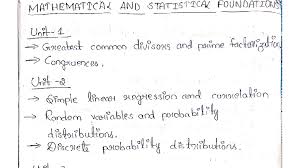 MATHEMATICAL AND STATISTICAL FOUNDATIONS
Unit-1
→ Greatest common divisors and prime factorization
→ Congruences.
Unit-2
→ Simple linear regression and correlation
→ Random variables and probability
distributions.
→ Discrete probability distributions.